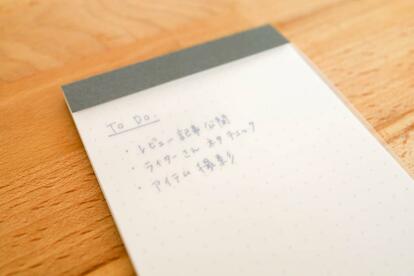 To Do.
・レビュー記事公開
・ライターさん ネタチェック
・アイテム 撮影